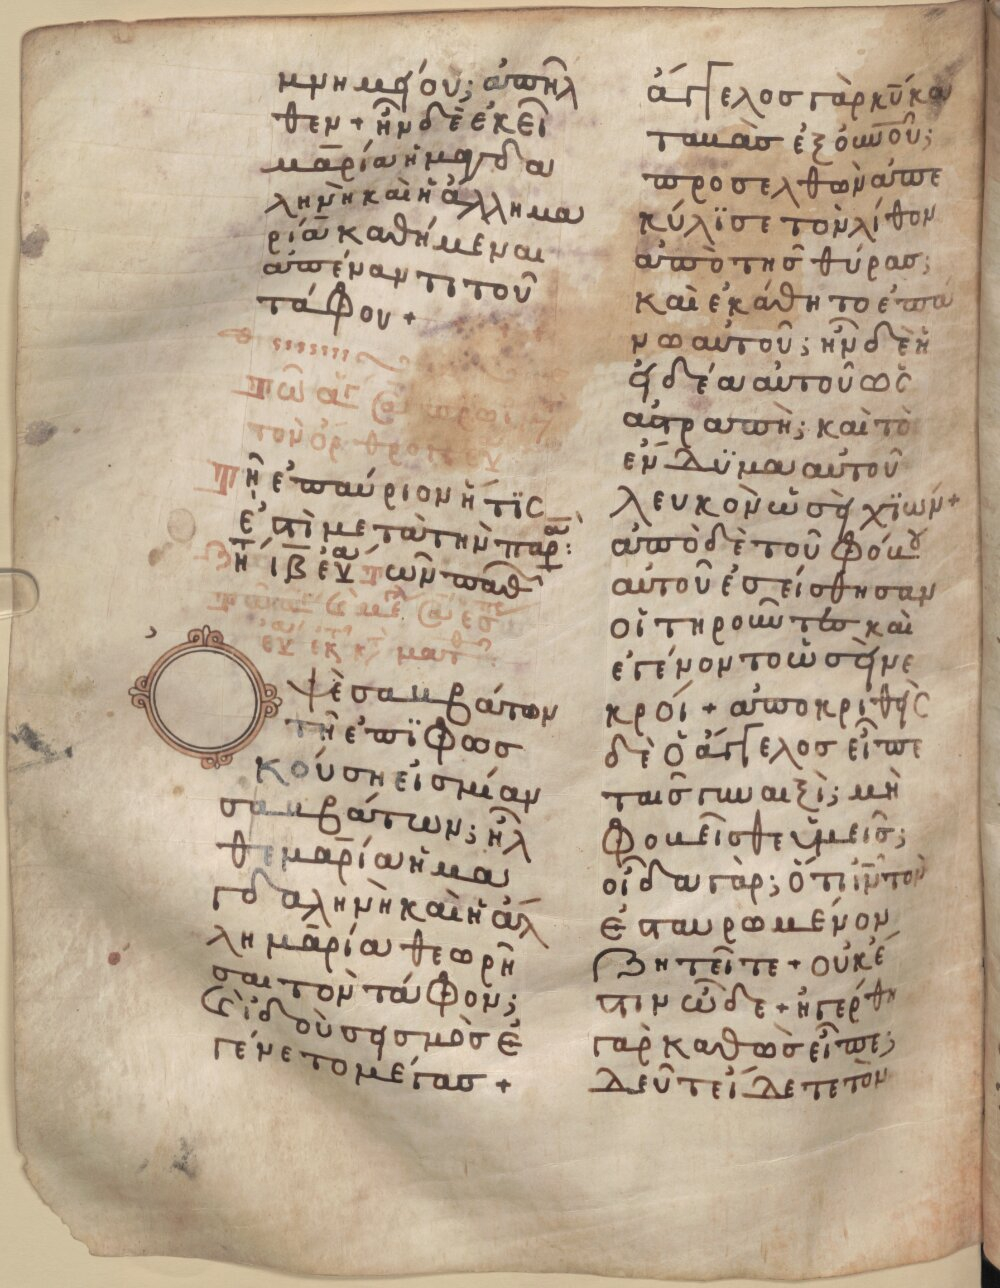 μνημείου; ἀπῆλ
θεν + ἦν δὲ ἐκεῖ
μαρία ἡ μαγδα
ληνὴ καὶ ἡ ἄλλη μα
ρία καθήμεναι
ἀπέναντι τοῦ
τάφου +
τὸν ὄρθρον
Τῆ ἐπαύριον ἥτις
ἐστὶ μετὰ τὴν παρ:
ζητ ιβ εὐα τῶν παθ
ψὲ σαββάτων
τῆ ἐπϊφωσ
κούση εἰς μίαν
σαββάτων; ἦλ
θε μαρία ἡ μα
γδαληνὴ καὶ ἡ ἄλ
λη μαρία θεωρῆ
σαι τὸν τάφον;
καὶ ἰδοὺ σεισμὸς ἐ
γένετο μέγας +
ἄγγελος γὰρ κ̅υ̅ κα
ταβὰς ἐξ ὀυ̅νοῦ;
προσελθὼν ἀπε
κύλϊσε τὸν λίθον
ἀπὸ τῆς θύρας;
καὶ ἐκάθητο ἐπά
νω αὐτοῦ; ἦν δὲ ἡ
εἰδέα αὐτοῦ ὡς
ἀστραπὴ; καὶ τὸ
ἔνδϋμα αὐτοῦ
λευκὸν ὡσεὶ χϊών+
ἀπὸ δὲ τοῦ φόβου
αὐτοῦ ἐσείσθησαν
οἱ τηροῦντες καὶ
ἐγένοντο ὡσεὶ νε
κροί + ἀποκριθεὶς
δὲ ὁ ἄγγελος εἶπε
ταῖς γυναιξὶ; μὴ
φοβεῖσθε ὑμεῖς;
οἶδα γὰρ; ὅτι ι̅ν̅ τὸν
ἐσταυρωμένον
ζητεῖτε + οὐκ ἔ
στιν ὧδε + ἠγέρθη
γὰρ καθὼς εἶπε;
δεῦτε ἴδετε τὸν